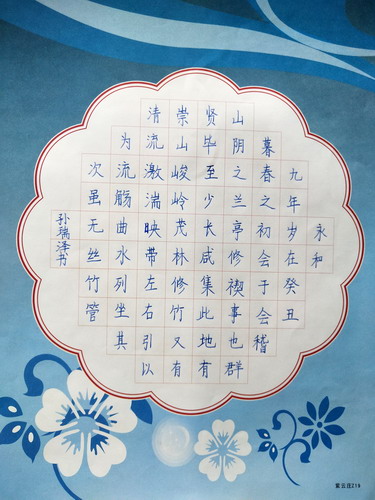 永和
九年岁在癸丑
暮春之初会于会稽
山阴之兰亭修禊事也群
贤毕至少长咸集此地有
崇山峻岭茂林修竹又有
清流激湍映带左右引以
为流觞曲水列坐其
次虽无丝竹管
孙瑞泽书